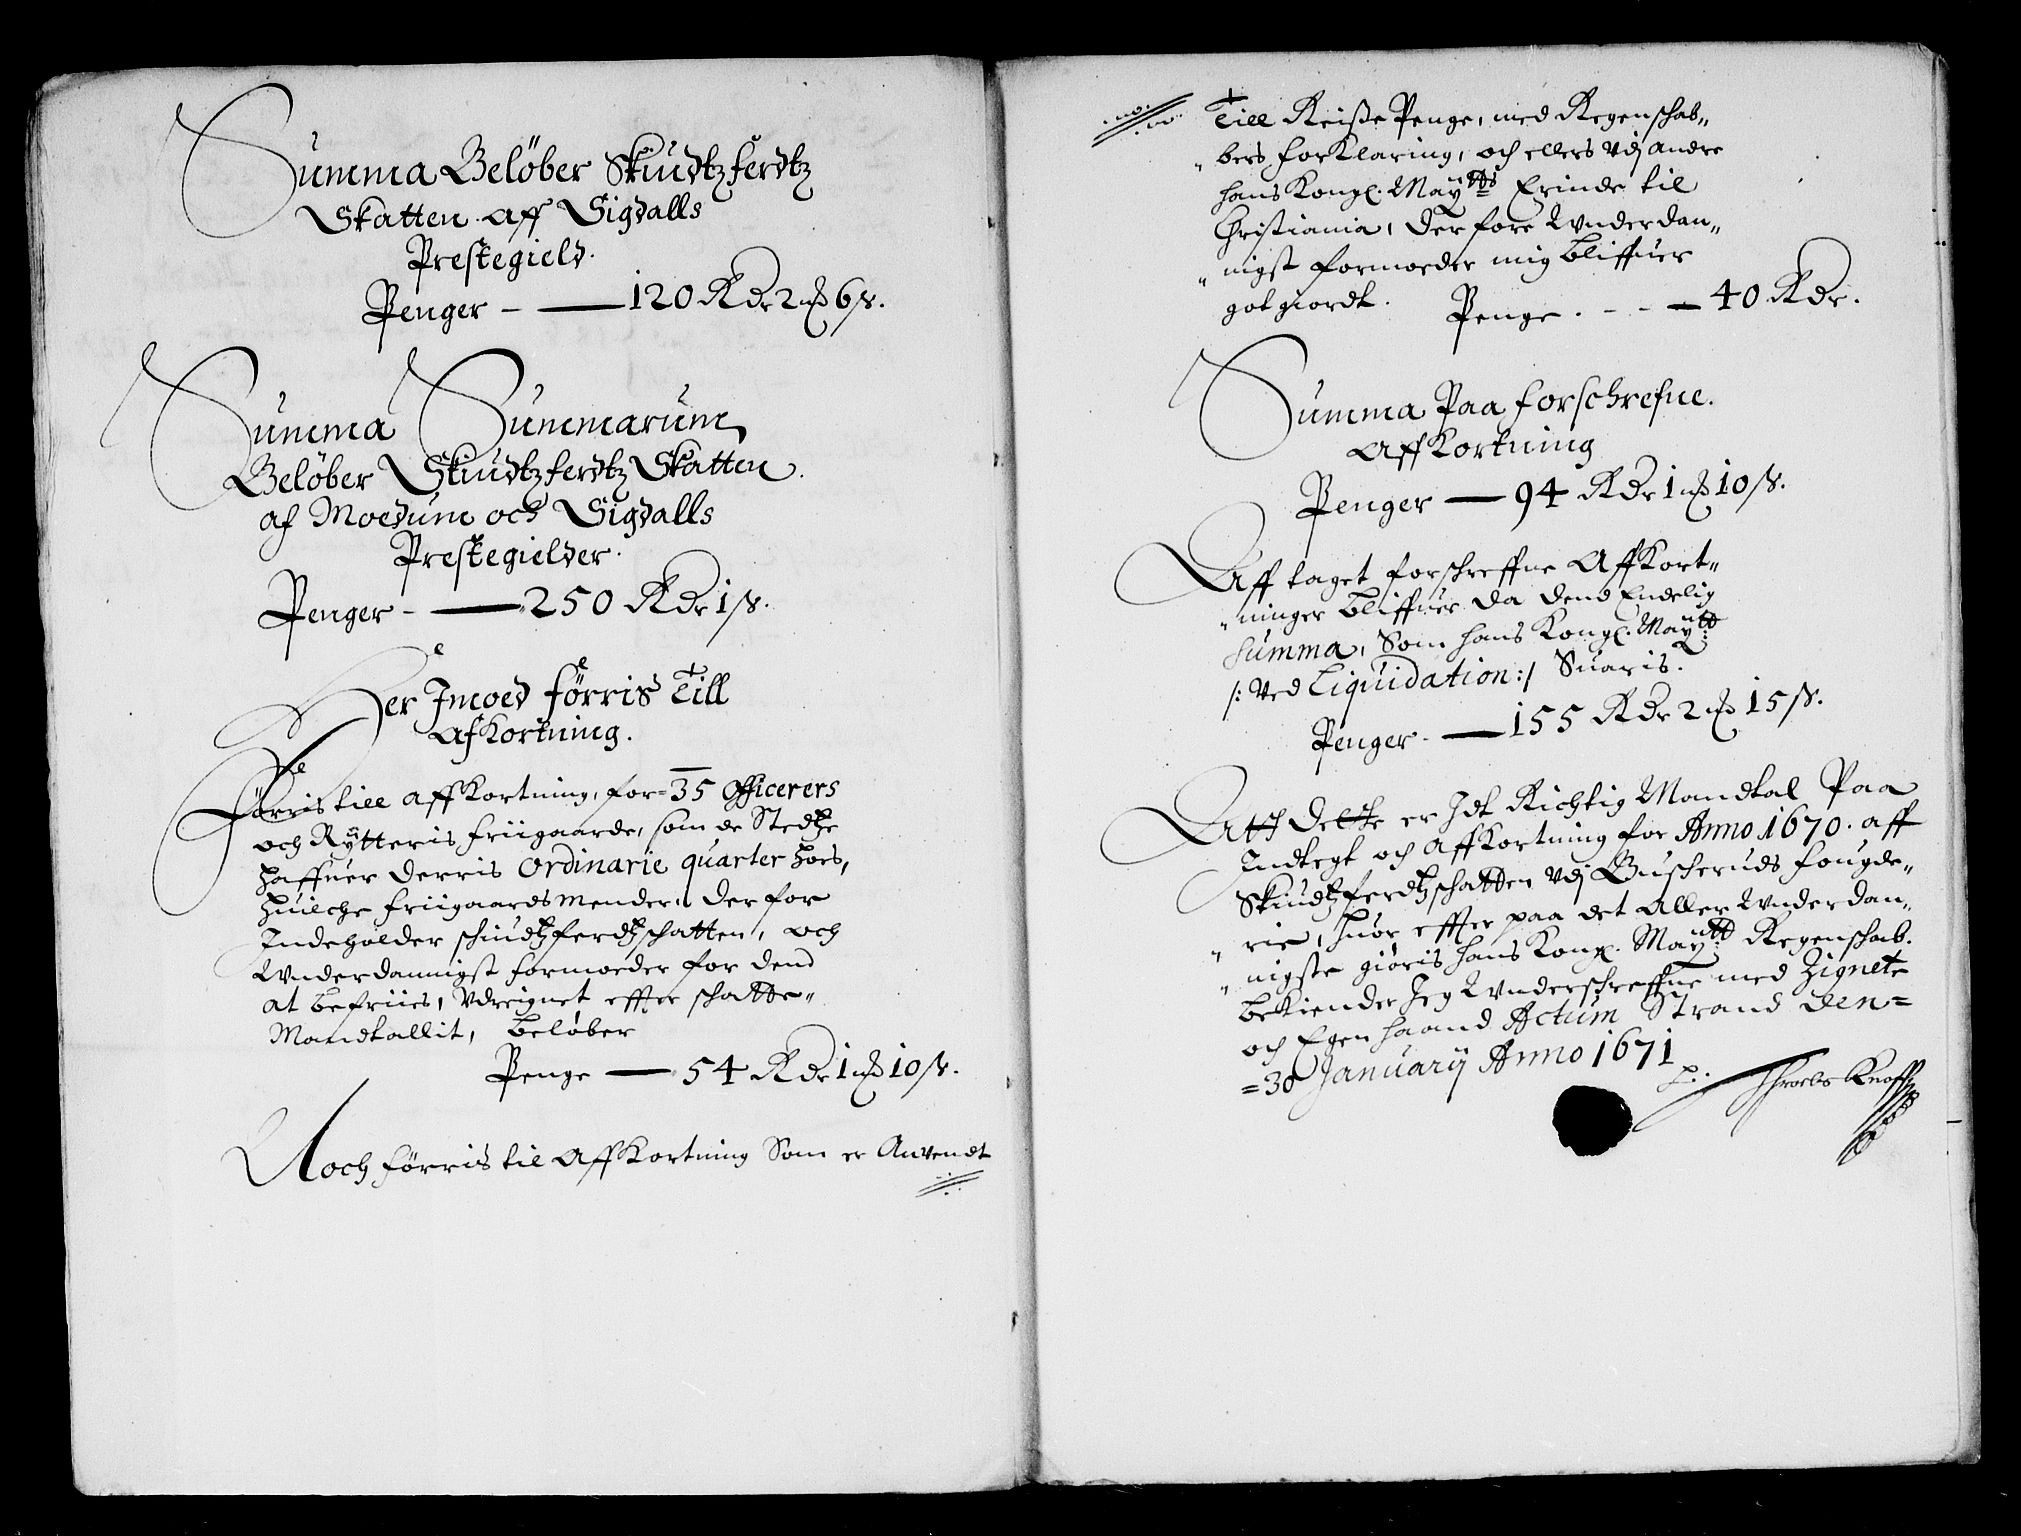 Summa Beløber Skiudtzferdtz
Skatten aff Sigdalls
Prestegield.
Penger – — 120 Rdr 2 mſ 6 ß.
Summa Summarum
Beløber Skiudtzferdtz Skatten
af Moedum och Sigdalls
Prestegielder.
Penger – — 250 Rdr 1 ß.
Her Imoed førris Till
afKortning.
Førris till affKortning, for 35 Officerers
och Rytteris friigaarde, som de Stedtze
haffuer derris Ordinarie quarter hoes,
huilche friigaardsmender, der for
Indeholder schiudtzferdtzschatten, och
Wnderdannigst formoeder for dend
at befriies, Vdreignet effter schatte„
Mandtallit, beløber
Penge — 54 Rdr 1 mſ 10 ß.
Noch førris til AffKortning Som er Anvendt
Till Reiße Penge, med Regenschab„
„bers forKlaring, och ellers Vdj andre
hans Kongl. Maÿtts Erinde til
Christiania, der fore Wnderdan„
„nigst formoeder mig bliffuer
gotgiordt. Penge . – - — 40 Rdr.
Summa Paa forschrefne.
AffKortning
Penger — 94 Rdr 1 mſ 10 ß.
Aff taget forschreffne AffKort„
„ninger bliffuer da dend Endelig
Summa, Som hans Kongl. Maÿtt
/: Ved Liquidation :/ Suaris.
Penger - — 155 Rdr 2 mſ 15 ß.
Att dette er Idt Richtig Mandtal Paa
Indtegt och affKortning for Anno 1670. aff
Skiudtzferdtzschatten Vdj Buscheruds fougde„
„rie, huor effter paa det aller Wnderdan„
„nigste giøris hans Kongl. Maÿtt Regenschab.
bekiender Jeg Wnderschreffne med Zignete
och Egen haand Actum Strand den=
=30 Januarij Anno 1671